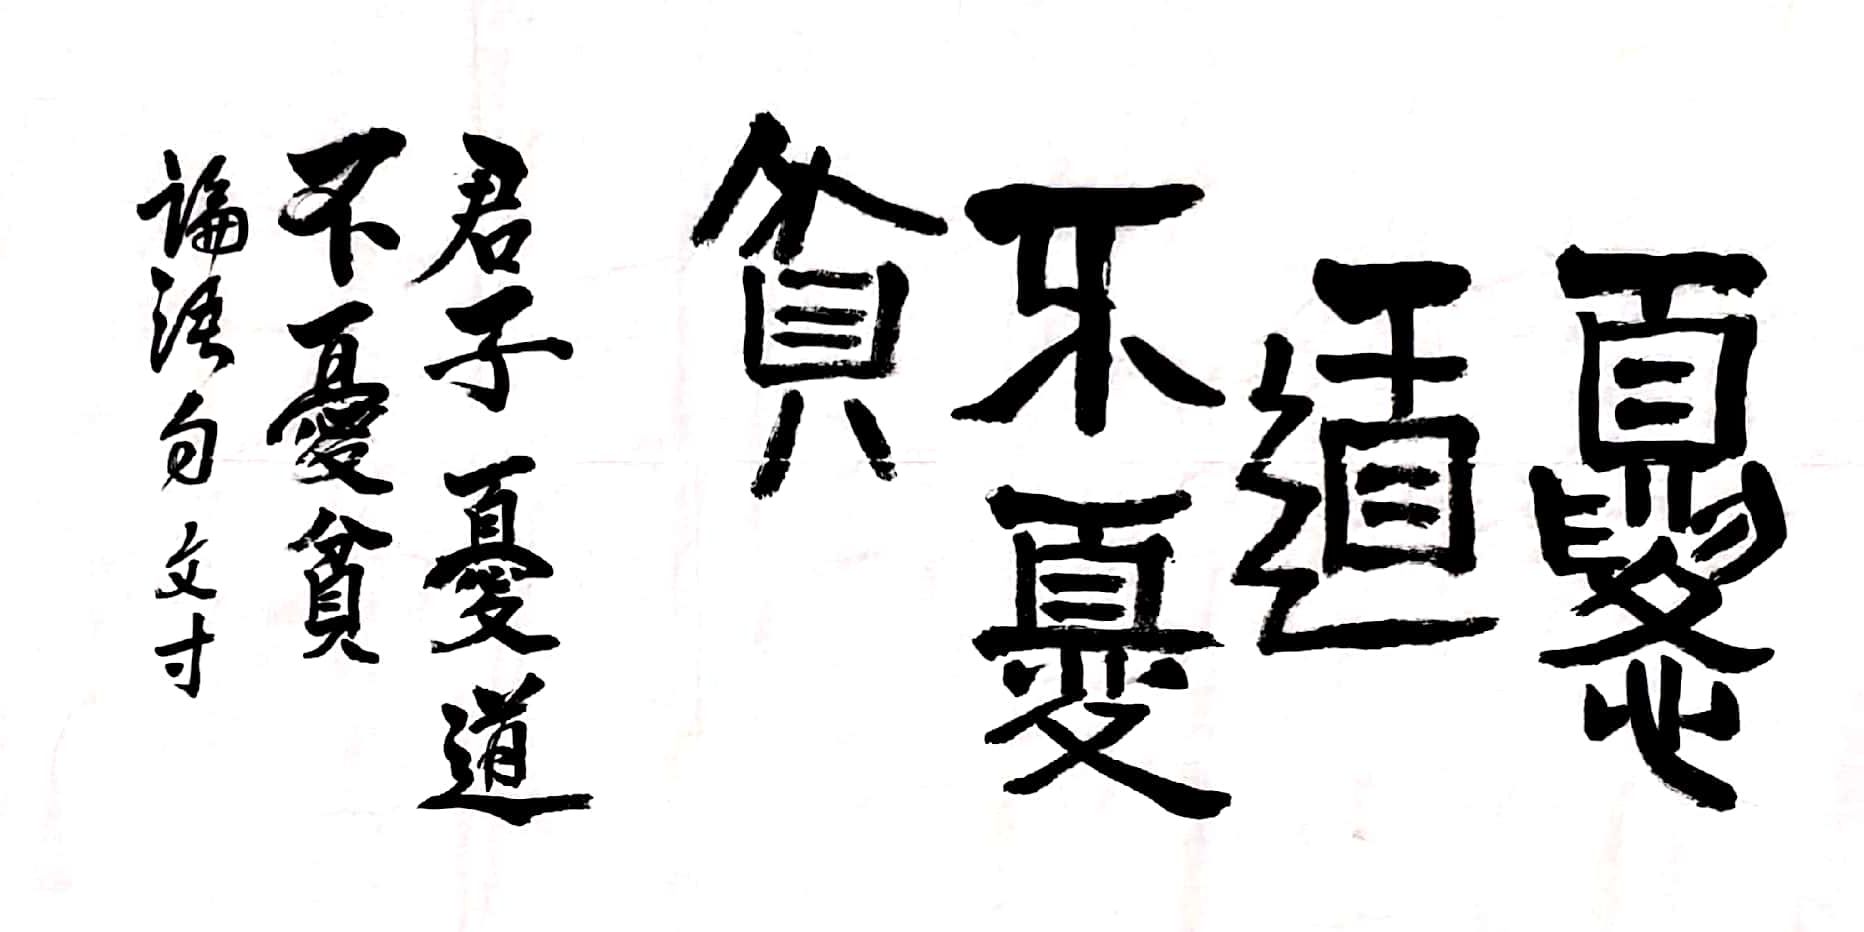 憂
道
不憂
貧
君子憂道
不憂貧
論語句 文寸